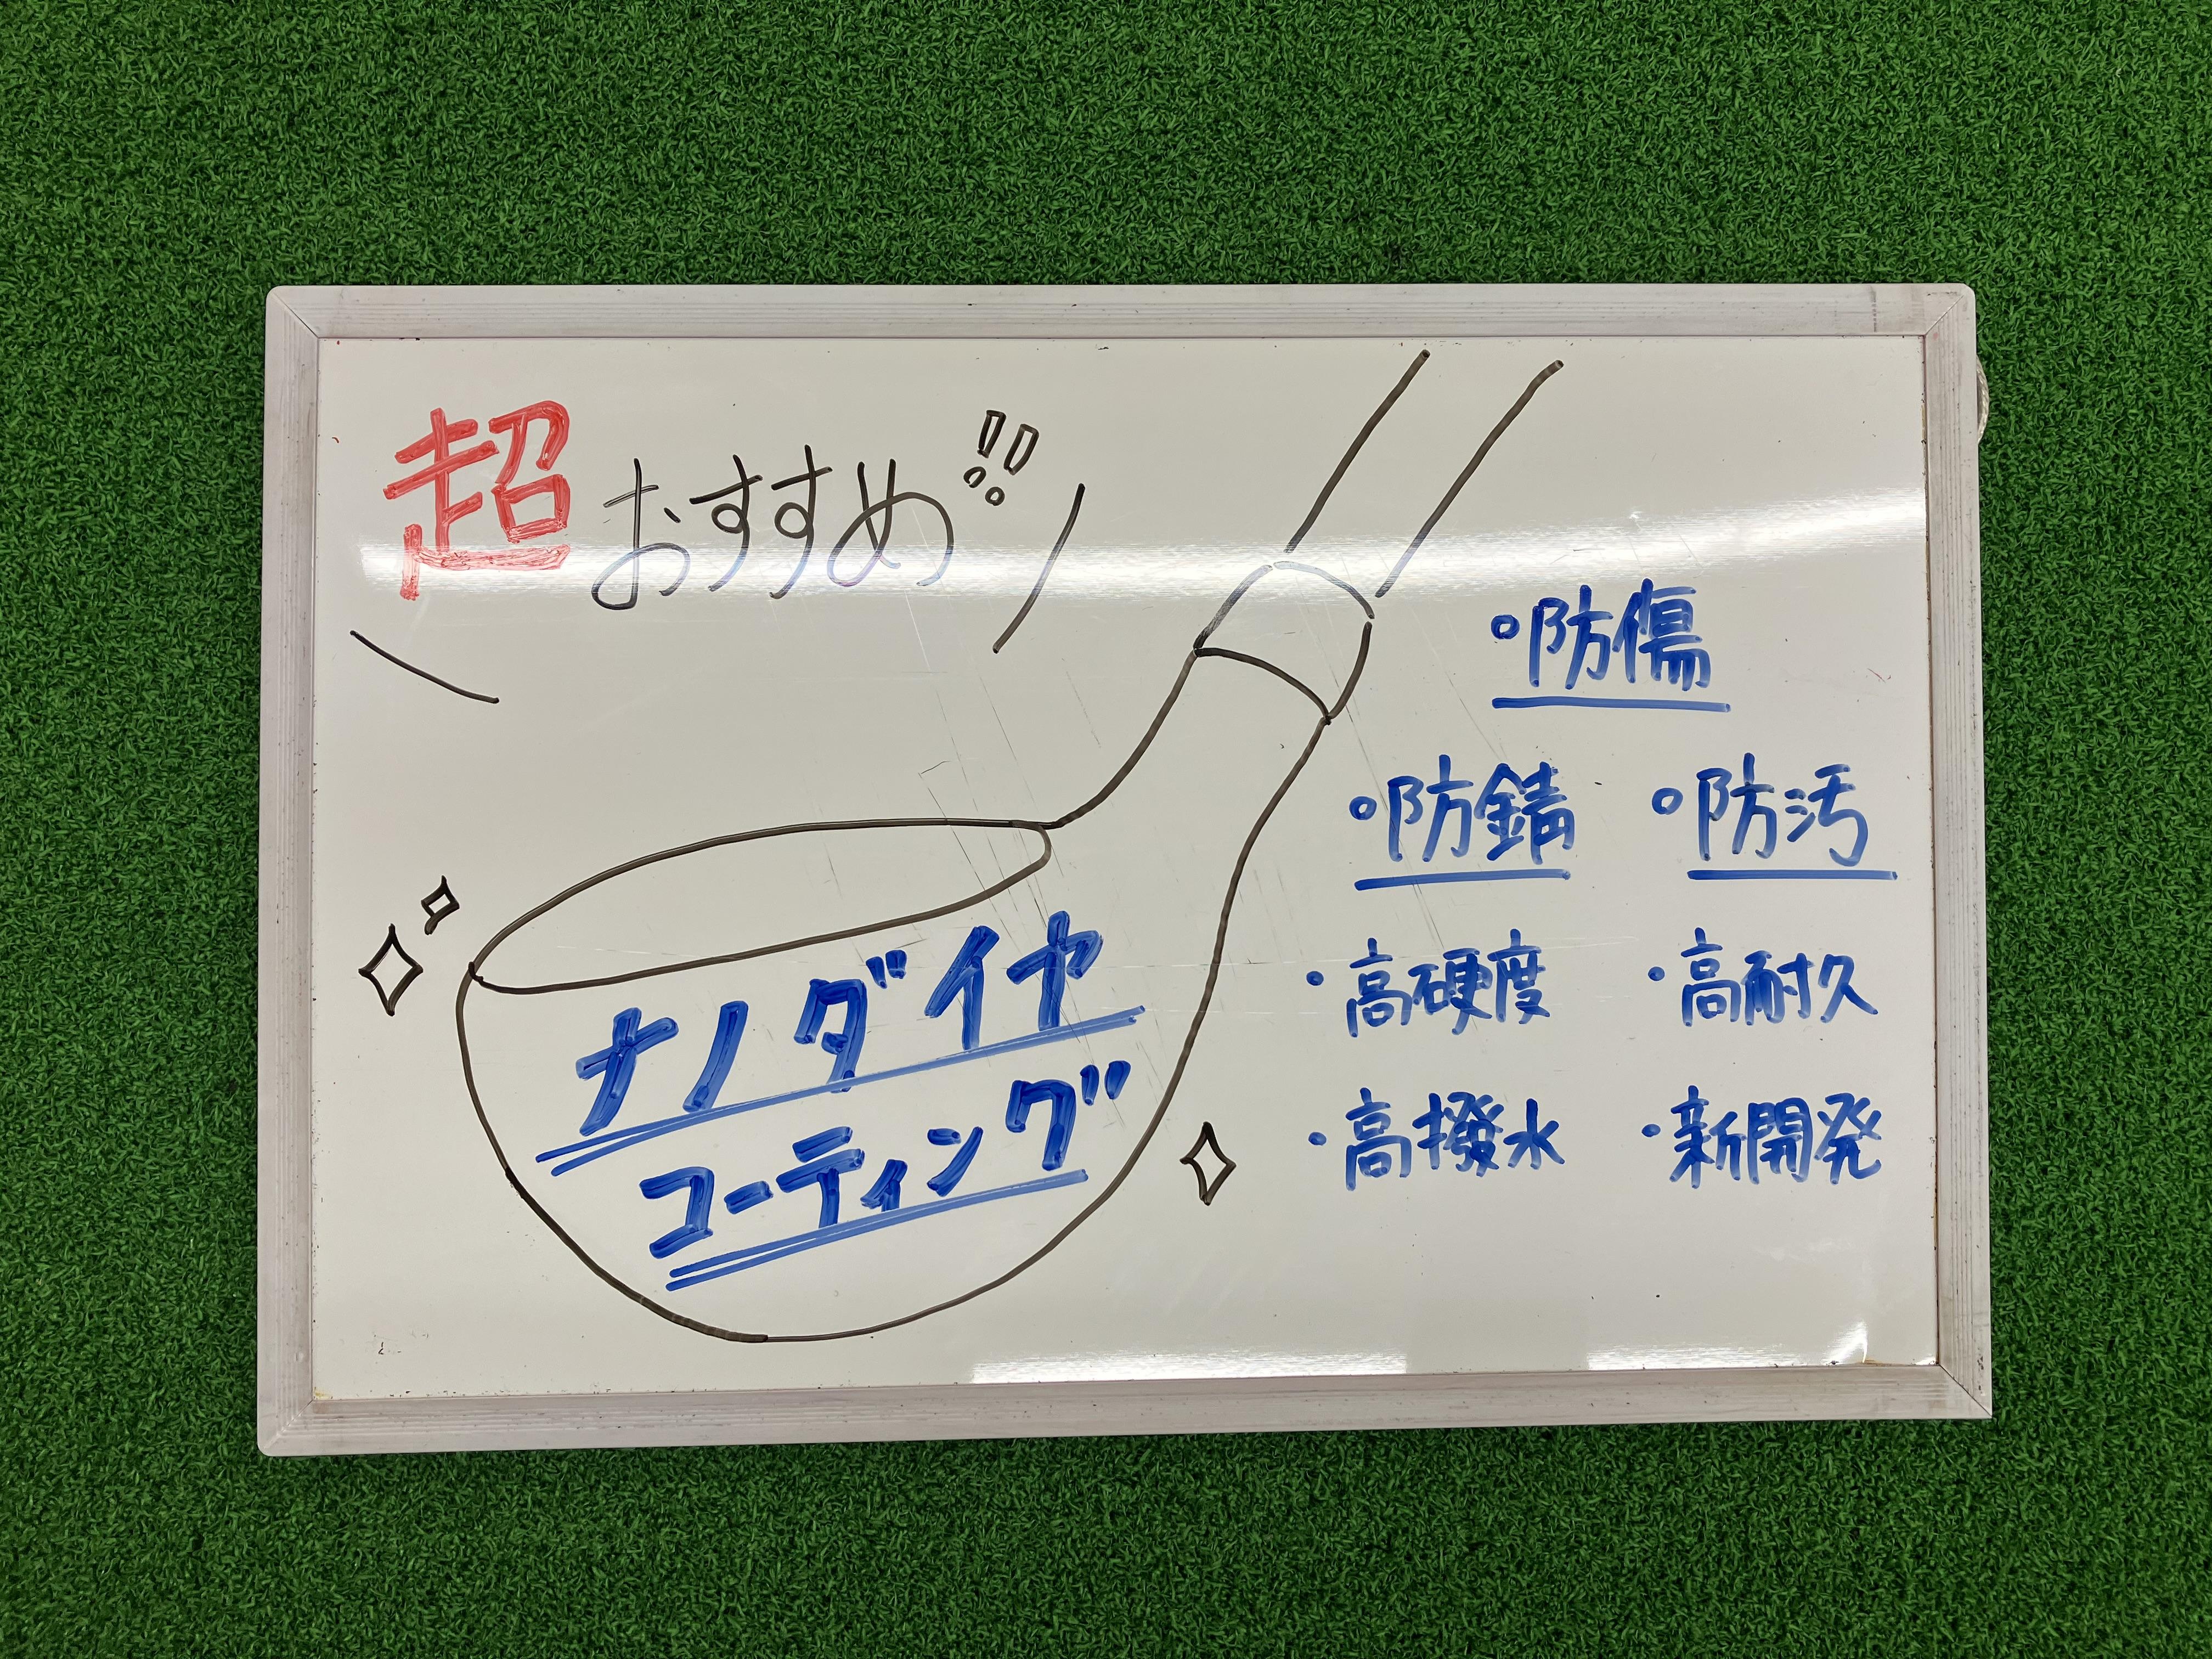 超おすすめ!!
ナノダイヤ
コーティング
。防傷
。防錆 。防汚
・高硬度 ・高耐久
・高撥水 ・新開発